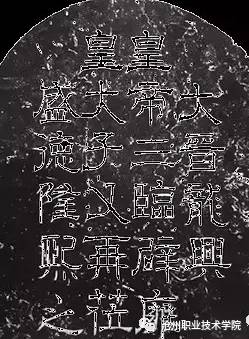 大晉龍興
皇帝三臨辟雍
皇大子又再莅
盛德隆熙之
州职业技术学院